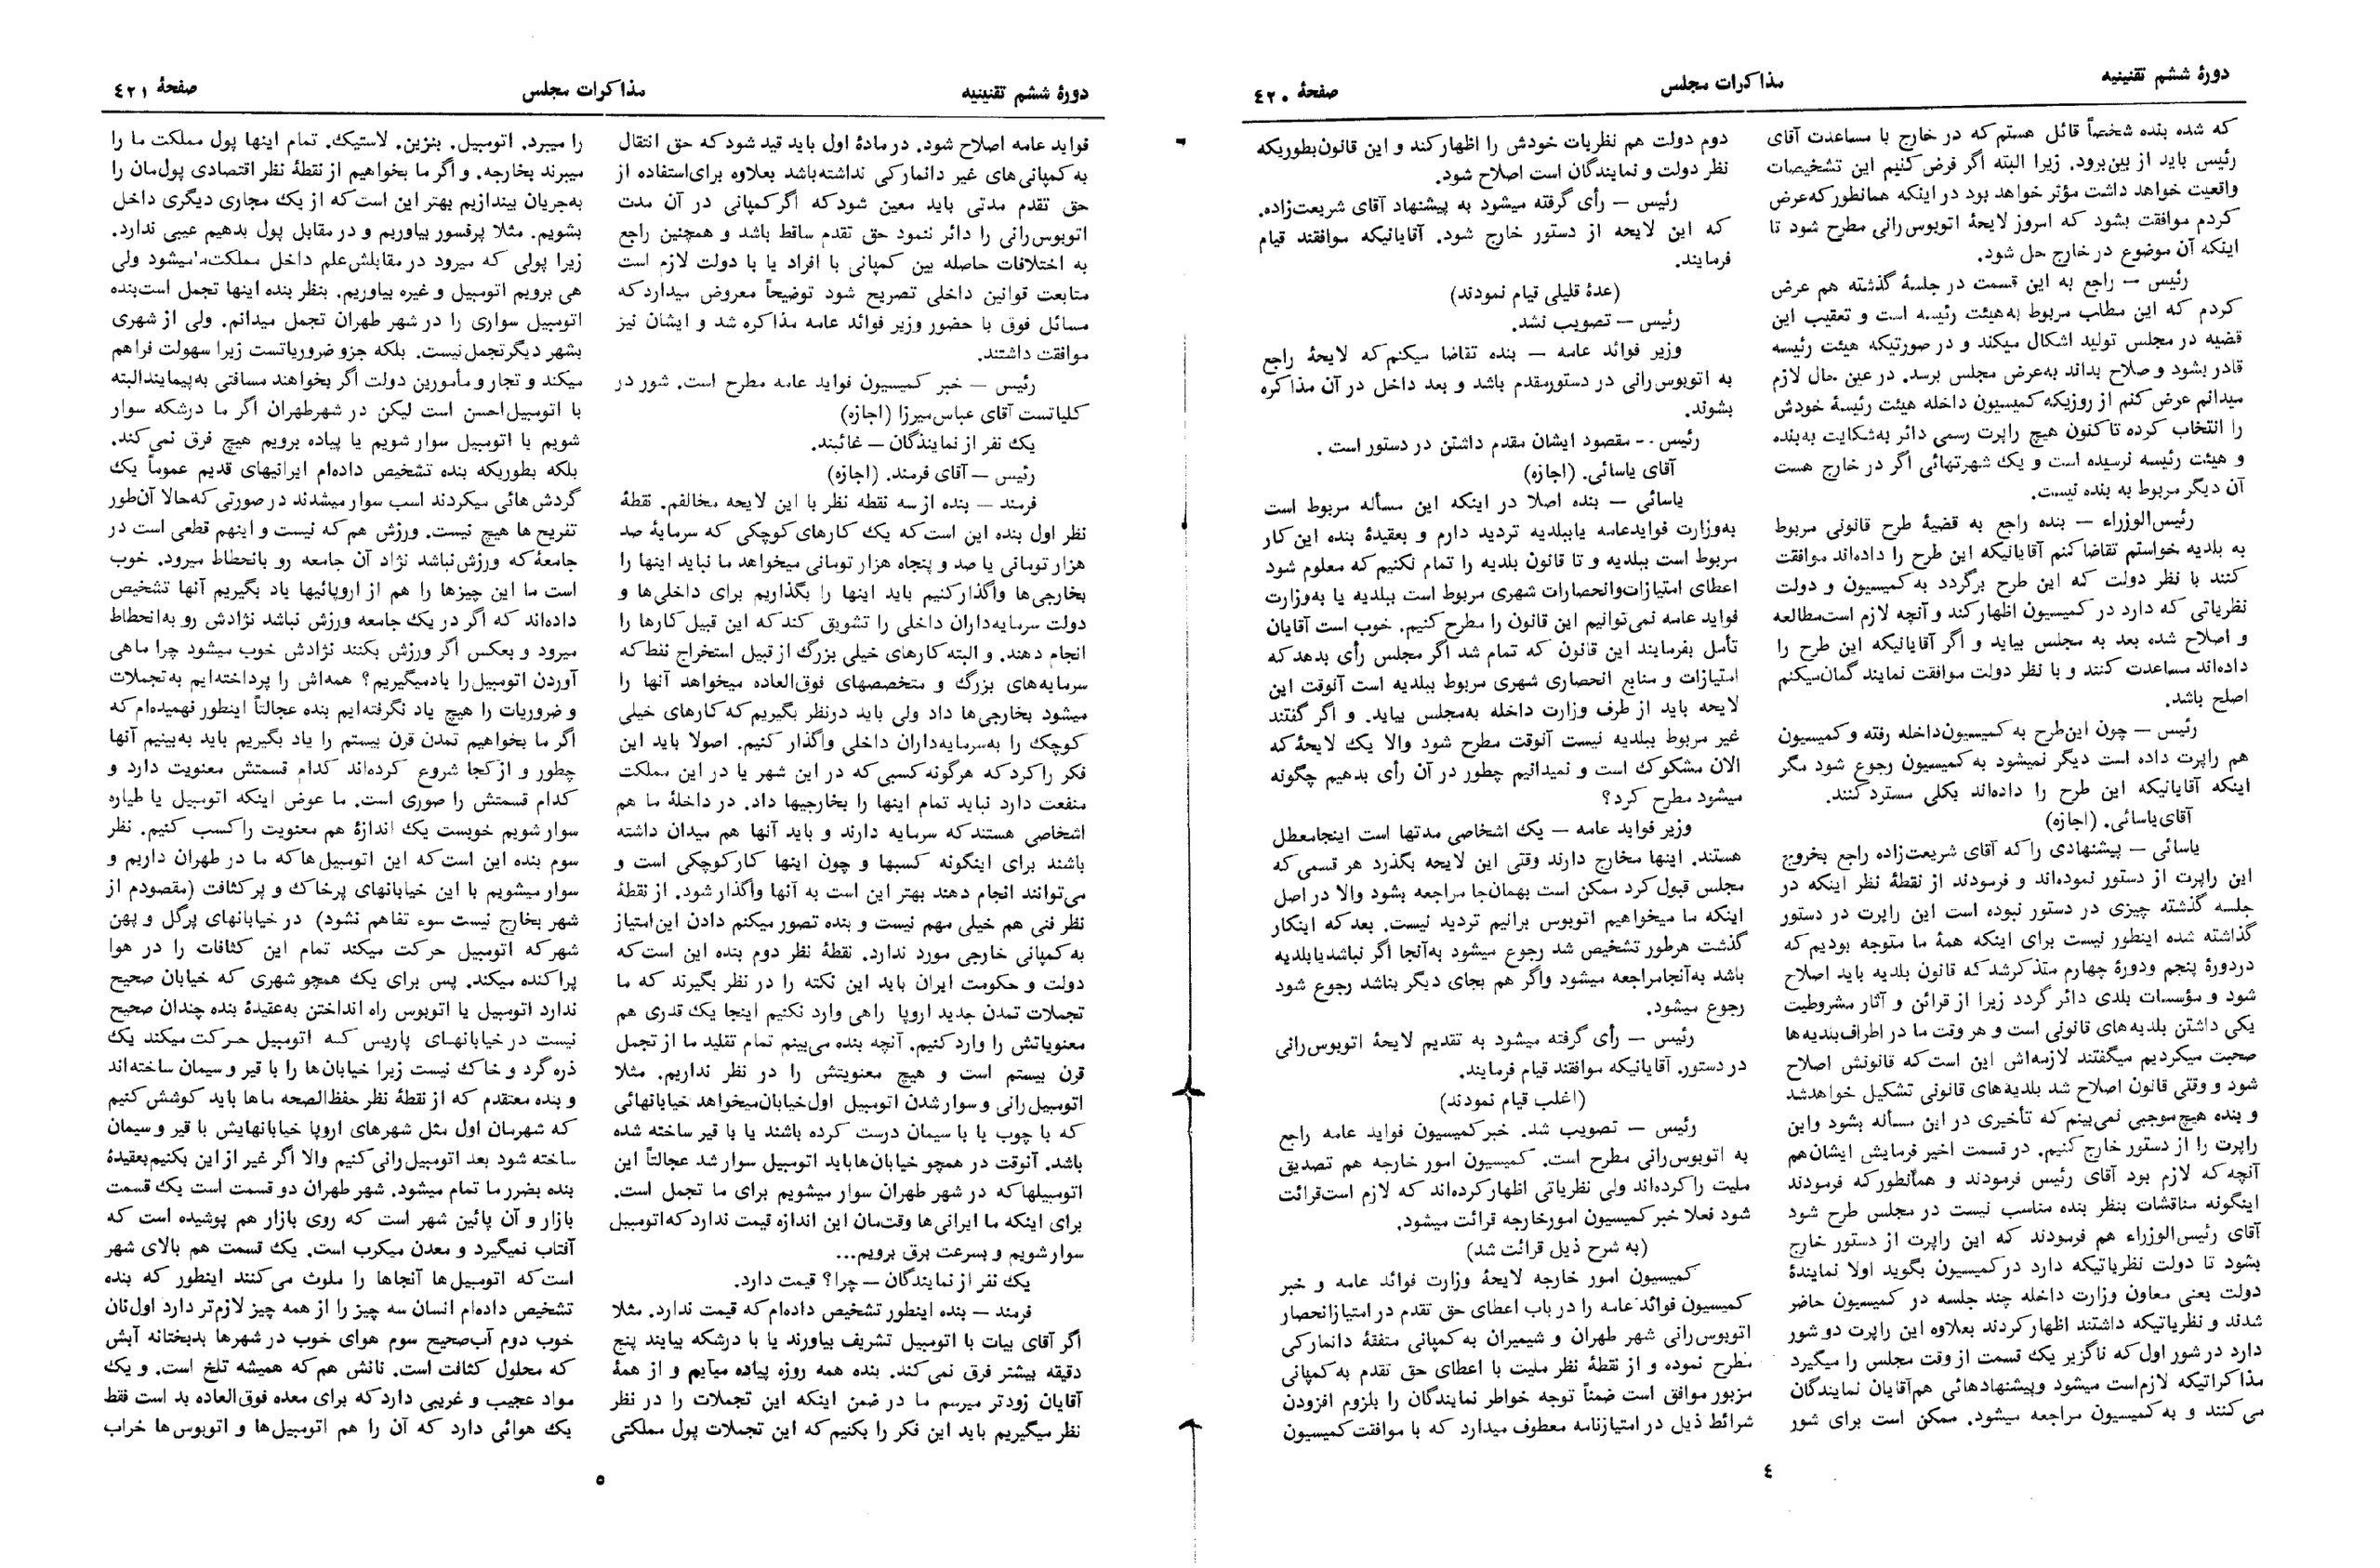 دورهٔ ششم تقنینیه
مذاکرات مجلس
صفحهٔ ٤٢٠
که شده بنده شخصاً قائل هستم که در خارج با مساعدت آقای
رئیس باید از بین‌برود. زیرا البته اگر فرض کنیم این تشخیصات
واقعیت خواهد داشت مؤثر خواهد بود در اینکه همانطور که‌عرض
کردم موافقت بشود که امروز لایحهٔ اتوبوس‌رانی مطرح شود تا
اینکه آن موضوع در خارج حل شود.
رئیس — راجع به این قسمت در جلسهٔ گذشته هم عرض
کردم که این مطلب مربوط به‌هیئت رئیسه است و تعقیب این
قضیه در مجلس تولید اشکال میکند و در صورتیکه هیئت رئیسه
قادر بشود و صلاح بداند به‌عرض مجلس برسد. در عین حال لازم
میدانم عرض کنم از روزیکه کمیسیون داخله هیئت رئیسهٔ خودش
را انتخاب کرده تاکنون هیچ راپرت رسمی دائر به‌شکایت به‌بنده
و هیئت رئیسه نرسیده است و یک شهرتهائی اگر در خارج هست
آن دیگر مربوط به بنده نیست.
رئیس‌الوزراء — بنده راجع به قضیهٔ طرح قانونی مربوط
به بلدیه خواستم تقاضا کنم آقایانیکه این طرح را داده‌اند موافقت
کنند با نظر دولت که این طرح برگردد به کمیسیون و دولت
نظریاتی که دارد در کمیسیون اظهار کند و آنچه لازم است‌مطالعه
و اصلاح شده بعد به مجلس بیاید و اگر آقایانیکه این طرح را
داده‌اند مساعدت کنند و با نظر دولت موافقت نمایند گمان‌میکنم
اصلح باشد.
رئیس — چون این‌طرح به کمیسیون‌داخله رفته و کمیسیون
هم راپرت داده است دیگر نمیشود به کمیسیون رجوع شود مگر
اینکه آقایانیکه این طرح را داده‌اند بکلی مسترد کنند.
آقای یاسائی. (اجازه)
یاسائی — پیشنهادی را که آقای شریعت‌زاده راجع بخروج
این راپرت از دستور نموده‌اند و فرمودند از نقطهٔ نظر اینکه در
جلسه گذشته چیزی در دستور نبوده است این راپرت در دستور
گذاشته شده اینطور نیست برای اینکه همهٔ ما متوجه بودیم که
دردورهٔ پنجم ودورهٔ چهارم متذکرشد که قانون بلدیه باید اصلاح
شود و مؤسسات بلدی دائر گردد زیرا از قرائن و آثار مشروطیت
یکی داشتن بلدیه‌های قانونی است و هر وقت ما در اطراف‌بلدیه‌ها
صحبت میکردیم میگفتند لازمه‌اش این است که قانونش اصلاح
شود و وقتی قانون اصلاح شد بلدیه‌های قانونی تشکیل خواهدشد
و بنده هیچ‌موجبی نمی‌بینم که تأخیری در این مسأله بشود واین
راپرت را از دستور خارج کنیم. در قسمت اخیر فرمایش ایشان‌هم
آنچه که لازم بود آقای رئیس فرمودند و همانطور که فرمودند
اینگونه مناقشات بنظر بنده مناسب نیست در مجلس طرح شود
آقای رئیس‌الوزراء هم فرمودند که این راپرت از دستور خارج
بشود تا دولت نظریاتیکه دارد در کمیسیون بگوید اولا نمایندهٔ
دولت یعنی معاون وزارت داخله چند جلسه در کمیسیون حاضر
شدند و نظریاتیکه داشتند اظهار کردند بعلاوه این راپرت دو شور
دارد در شور اول که ناگزیر یک قسمت از وقت مجلس را میگیرد
مذاکراتیکه لازم‌است میشود وپیشنهادهائی هم‌آقایان نمایندگان
می‌کنند و به کمیسیون مراجعه میشود. ممکن است برای شور
دوم دولت هم نظریات خودش را اظهار کند و این قانون بطوریکه
نظر دولت و نمایندگان است اصلاح شود.
رئیس — رأی گرفته میشود به پیشنهاد آقای شریعت‌زاده.
که این لایحه از دستور خارج شود. آقایانیکه موافقند قیام
فرمایند.
(عدهٔ قلیلی قیام نمودند)
رئیس — تصویب نشد.
وزیر فوائد عامه — بنده تقاضا میکنم که لایحهٔ راجع
به اتوبوس‌رانی در دستورمقدم باشد و بعد داخل در آن مذاکره
بشوند.
رئیس -- مقصود ایشان مقدم داشتن در دستور است .
آقای یاسائی. (اجازه)
یاسائی — بنده اصلا در اینکه این مسأله مربوط است
به‌وزارت فوایدعامه یاببلدیه تردید دارم و بعقیدهٔ بنده این کار
مربوط است ببلدیه و تا قانون بلدیه را تمام نکنیم که معلوم شود
اعطای امتیازات‌وانحصارات شهری مربوط است ببلدیه یا به‌وزارت
فواید عامه نمی‌توانیم این قانون را مطرح کنیم. خوب است آقایان
تأمل بفرمایند این قانون که تمام شد اگر مجلس رأی بدهد که
امتیازات و منابع انحصاری شهری مربوط ببلدیه است آنوقت این
لایحه باید از طرف وزارت داخله به‌مجلس بیاید. و اگر گفتند
غیر مربوط ببلدیه نیست آنوقت مطرح شود والا یک لایحهٔ که
الان مشکوک است و نمیدانیم چطور در آن رأی بدهیم چگونه
میشود مطرح کرد؟
وزیر فواید عامه — یک اشخاصی مدتها است اینجامعطل
هستند. اینها مخارج دارند وقتی این لایحه بگذرد هر قسمی که
مجلس قبول کرد ممکن است بهمان‌جا مراجعه بشود والا در اصل
اینکه ما میخواهیم اتوبوس برانیم تردید نیست. بعد که اینکار
گذشت هرطور تشخیص شد رجوع میشود به‌آنجا اگر نباشدیابلدیه
باشد به‌آنجامراجعه میشود واگر هم بجای دیگر بناشد رجوع شود
رجوع میشود.
رئیس — رأی گرفته میشود به تقدیم لایحهٔ اتوبوس‌رانی
در دستور. آقایانیکه موافقند قیام فرمایند.
(اغلب قیام نمودند)
رئیس — تصویب شد. خبر کمیسیون فواید عامه راجع
به اتوبوس‌رانی مطرح است. کمیسیون امور خارجه هم تصدیق
ملیت را کرده‌اند ولی نظریاتی اظهار کرده‌اند که لازم است‌قرائت
شود فعلا خبر کمیسیون امورخارجه قرائت میشود.
(به شرح ذیل قرائت شد)
کمیسیون امور خارجه لایحهٔ وزارت فوائد عامه و خبر
کمیسیون فوائد عامه را در باب اعطای حق تقدم در امتیازانحصار
اتوبوس‌رانی شهر طهران و شیمیران به کمپانی متفقهٔ دانمارکی
مطرح نموده و از نقطهٔ نظر ملیت با اعطای حق تقدم به کمپانی
مزبور موافق است ضمناً توجه خواطر نمایندگان را بلزوم افزودن
شرائط ذیل در امتیازنامه معطوف میدارد که با موافقت کمیسیون
٤
دورهٔ ششم تقنینیه
مذاکرات مجلس
صفحهٔ ٤٢١
فواید عامه اصلاح شود. در مادهٔ اول باید قید شود که حق انتقال
به کمپانی‌های غیر دانمارکی نداشته‌باشد بعلاوه برای‌استفاده از
حق تقدم مدتی باید معین شود که اگر کمپانی در آن مدت
اتوبوس‌رانی را دائر ننمود حق تقدم ساقط باشد و همچنین راجع
به اختلافات حاصله بین کمپانی با افراد یا با دولت لازم است
متابعت قوانین داخلی تصریح شود توضیحاً معروض میدارد که
مسائل فوق با حضور وزیر فوائد عامه مذاکره شد و ایشان نیز
موافقت داشتند.
رئیس — خبر کمیسیون فواید عامه مطرح است. شور در
کلیاتست آقای عباس‌میرزا (اجازه)
یک نفر از نمایندگان — غائبند.
رئیس — آقای فرمند. (اجازه)
فرمند — بنده از سه نقطه نظر با این لایحه مخالفم. نقطهٔ
نظر اول بنده این است که یک کارهای کوچکی که سرمایهٔ صد
هزار تومانی یا صد و پنجاه هزار تومانی میخواهد ما نباید اینها را
بخارجی‌ها واگذار کنیم باید اینها را بگذاریم برای داخلی‌ها و
دولت سرمایه‌داران داخلی را تشویق کند که این قبیل کارها را
انجام دهند. و البته کارهای خیلی بزرگ از قبیل استخراج نفط که
سرمایه‌های بزرگ و متخصصهای فوق‌العاده میخواهد آنها را
میشود بخارجی‌ها داد ولی باید درنظر بگیریم که کارهای خیلی
کوچک را به‌سرمایه‌داران داخلی واگذار کنیم. اصولا باید این
فکر را کرد که هرگونه کسبی که در این شهر یا در این مملکت
منفعت دارد نباید تمام اینها را بخارجیها داد. در داخلهٔ ما هم
اشخاصی هستند که سرمایه دارند و باید آنها هم میدان داشته
باشند برای اینگونه کسبها و چون اینها کار کوچکی است و
می‌توانند انجام دهند بهتر این است به آنها واگذار شود. از نقطهٔ
نظر فنی هم خیلی مهم نیست و بنده تصور میکنم دادن این‌امتیاز
به کمپانی خارجی مورد ندارد. نقطهٔ نظر دوم بنده این است که
دولت و حکومت ایران باید این نکته را در نظر بگیرند که ما
تجملات تمدن جدید اروپا راهی وارد نکنیم اینجا یک قدری هم
معنویاتش را وارد کنیم. آنچه بنده می‌بینم تمام تقلید ما از تجمل
قرن بیستم است و هیچ معنویتش را در نظر نداریم. مثلا
اتومبیل‌رانی و سوار شدن اتومبیل اول خیابان‌میخواهد خیابانهائی
که با چوب یا با سیمان درست کرده باشند یا با قیر ساخته شده
باشد. آنوقت در همچو خیابان‌هاباید اتومبیل سوار شد عجالتاً این
اتومبیلها که در شهر طهران سوار میشویم برای ما تجمل است.
برای اینکه ما ایرانی‌ها وقت‌مان این اندازه قیمت ندارد که‌اتومبیل
سوار شویم و بسرعت برق برویم...
یک نفر از نمایندگان — چرا؟ قیمت دارد.
فرمند — بنده اینطور تشخیص داده‌ام که قیمت ندارد. مثلا
اگر آقای بیات با اتومبیل تشریف بیاورند یا با درشکه بیایند پنج
دقیقه بیشتر فرق نمی‌کند. بنده همه روزه پیاده میآیم و از همهٔ
آقایان زودتر میرسم ما در ضمن اینکه این تجملات را در نظر
نظر میگیریم باید این فکر را بکنیم که این تجملات پول مملکتی
را میبرد. اتومبیل. بنزین. لاستیک. تمام اینها پول مملکت ما را
میبرند بخارجه. و اگر ما بخواهیم از نقطهٔ نظر اقتصادی پول‌مان را
به‌جریان بیندازیم بهتر این است که از یک مجاری دیگری داخل
بشویم. مثلا پرفسور بیاوریم و در مقابل پول بدهیم عیبی ندارد.
زیرا پولی که میرود در مقابلش‌علم داخل مملکت میشود ولی
هی برویم اتومبیل و غیره بیاوریم. بنظر بنده اینها تجمل است‌بنده
اتومبیل سواری را در شهر طهران تجمل میدانم. ولی از شهری
بشهر دیگرتجمل‌نیست. بلکه جزو ضروریاتست زیرا سهولت فراهم
میکند و تجار و مأمورین دولت اگر بخواهند مسافتی به‌پیمایندالبته
با اتومبیل‌احسن است لیکن در شهرطهران اگر ما درشکه سوار
شویم یا اتومبیل سوار شویم یا پیاده برویم هیچ فرق نمی‌کند.
بلکه بطوریکه بنده تشخیص داده‌ام ایرانیهای قدیم عموماً یک
گردش هائی میکردند اسب سوار میشدند در صورتی که‌حالا آن‌طور
تفریح ها هیچ نیست. ورزش هم که نیست و اینهم قطعی است در
جامعهٔ که ورزش‌نباشد نژاد آن جامعه رو بانحطاط میرود. خوب
است ما این چیزها را هم از اروپائیها یاد بگیریم آنها تشخیص
داده‌اند که اگر در یک جامعه ورزش نباشد نژادش رو به‌انحطاط
میرود و بعکس اگر ورزش بکنند نژادش خوب میشود چرا ماهی
آوردن اتومبیل را یادمیگیریم؟ همه‌اش را پرداخته‌ایم به‌تجملات
و ضروریات را هیچ یاد نگرفته‌ایم بنده عجالتاً اینطور فهمیده‌ام که
اگر ما بخواهیم تمدن قرن بیستم را یاد بگیریم باید به‌بینیم آنها
چطور و از کجا شروع کرده‌اند کدام قسمتش معنویت دارد و
کدام قسمتش را صوری است. ما عوض اینکه اتومبیل یا طیاره
سوار شویم خوبست یک اندازهٔ هم معنویت را کسب کنیم. نظر
سوم بنده این است که این اتومبیل‌ها که ما در طهران داریم و
سوار میشویم با این خیابانهای پرخاک و پر کثافت (مقصودم از
شهر بخارج نیست سوء تفاهم نشود) در خیابانهای پرگل و پهن
شهر که اتومبیل حرکت میکند تمام این کثافات را در هوا
پراکنده میکند. پس برای یک همچو شهری که خیابان صحیح
ندارد اتومبیل یا اتوبوس راه انداختن به‌عقیدهٔ بنده چندان صحیح
نیست در خیابانهای پاریس که اتومبیل حرکت میکند یک
ذره گرد و خاک نیست زیرا خیابان‌ها را با قیر و سیمان ساخته‌اند
و بنده معتقدم که از نقطهٔ نظر حفظ‌الصحه ماها باید کوشش کنیم
که شهرمان اول مثل شهرهای اروپا خیابانهایش با قیر و سیمان
ساخته شود بعد اتومبیل‌رانی کنیم والا اگر غیر از این بکنیم‌بعقیدهٔ
بنده بضرر ما تمام میشود. شهر طهران دو قسمت است یک قسمت
بازار و آن پائین شهر است که روی بازار هم پوشیده است که
آفتاب نمیگیرد و معدن میکرب است. یک قسمت هم بالای شهر
است که اتومبیل‌ها آنجاها را ملوث می‌کنند اینطور که بنده
تشخیص داده‌ام انسان سه چیز را از همه چیز لازم‌تر دارد اول‌نان
خوب دوم آب‌صحیح سوم هوای خوب در شهرها بدبختانه آبش
که محلول کثافت است. نانش هم که همیشه تلخ است. و یک
مواد عجیب و غریبی دارد که برای معده فوق‌العاده بد است فقط
یک هوائی دارد که آن را هم اتومبیل‌ها و اتوبوس‌ها خراب
٥